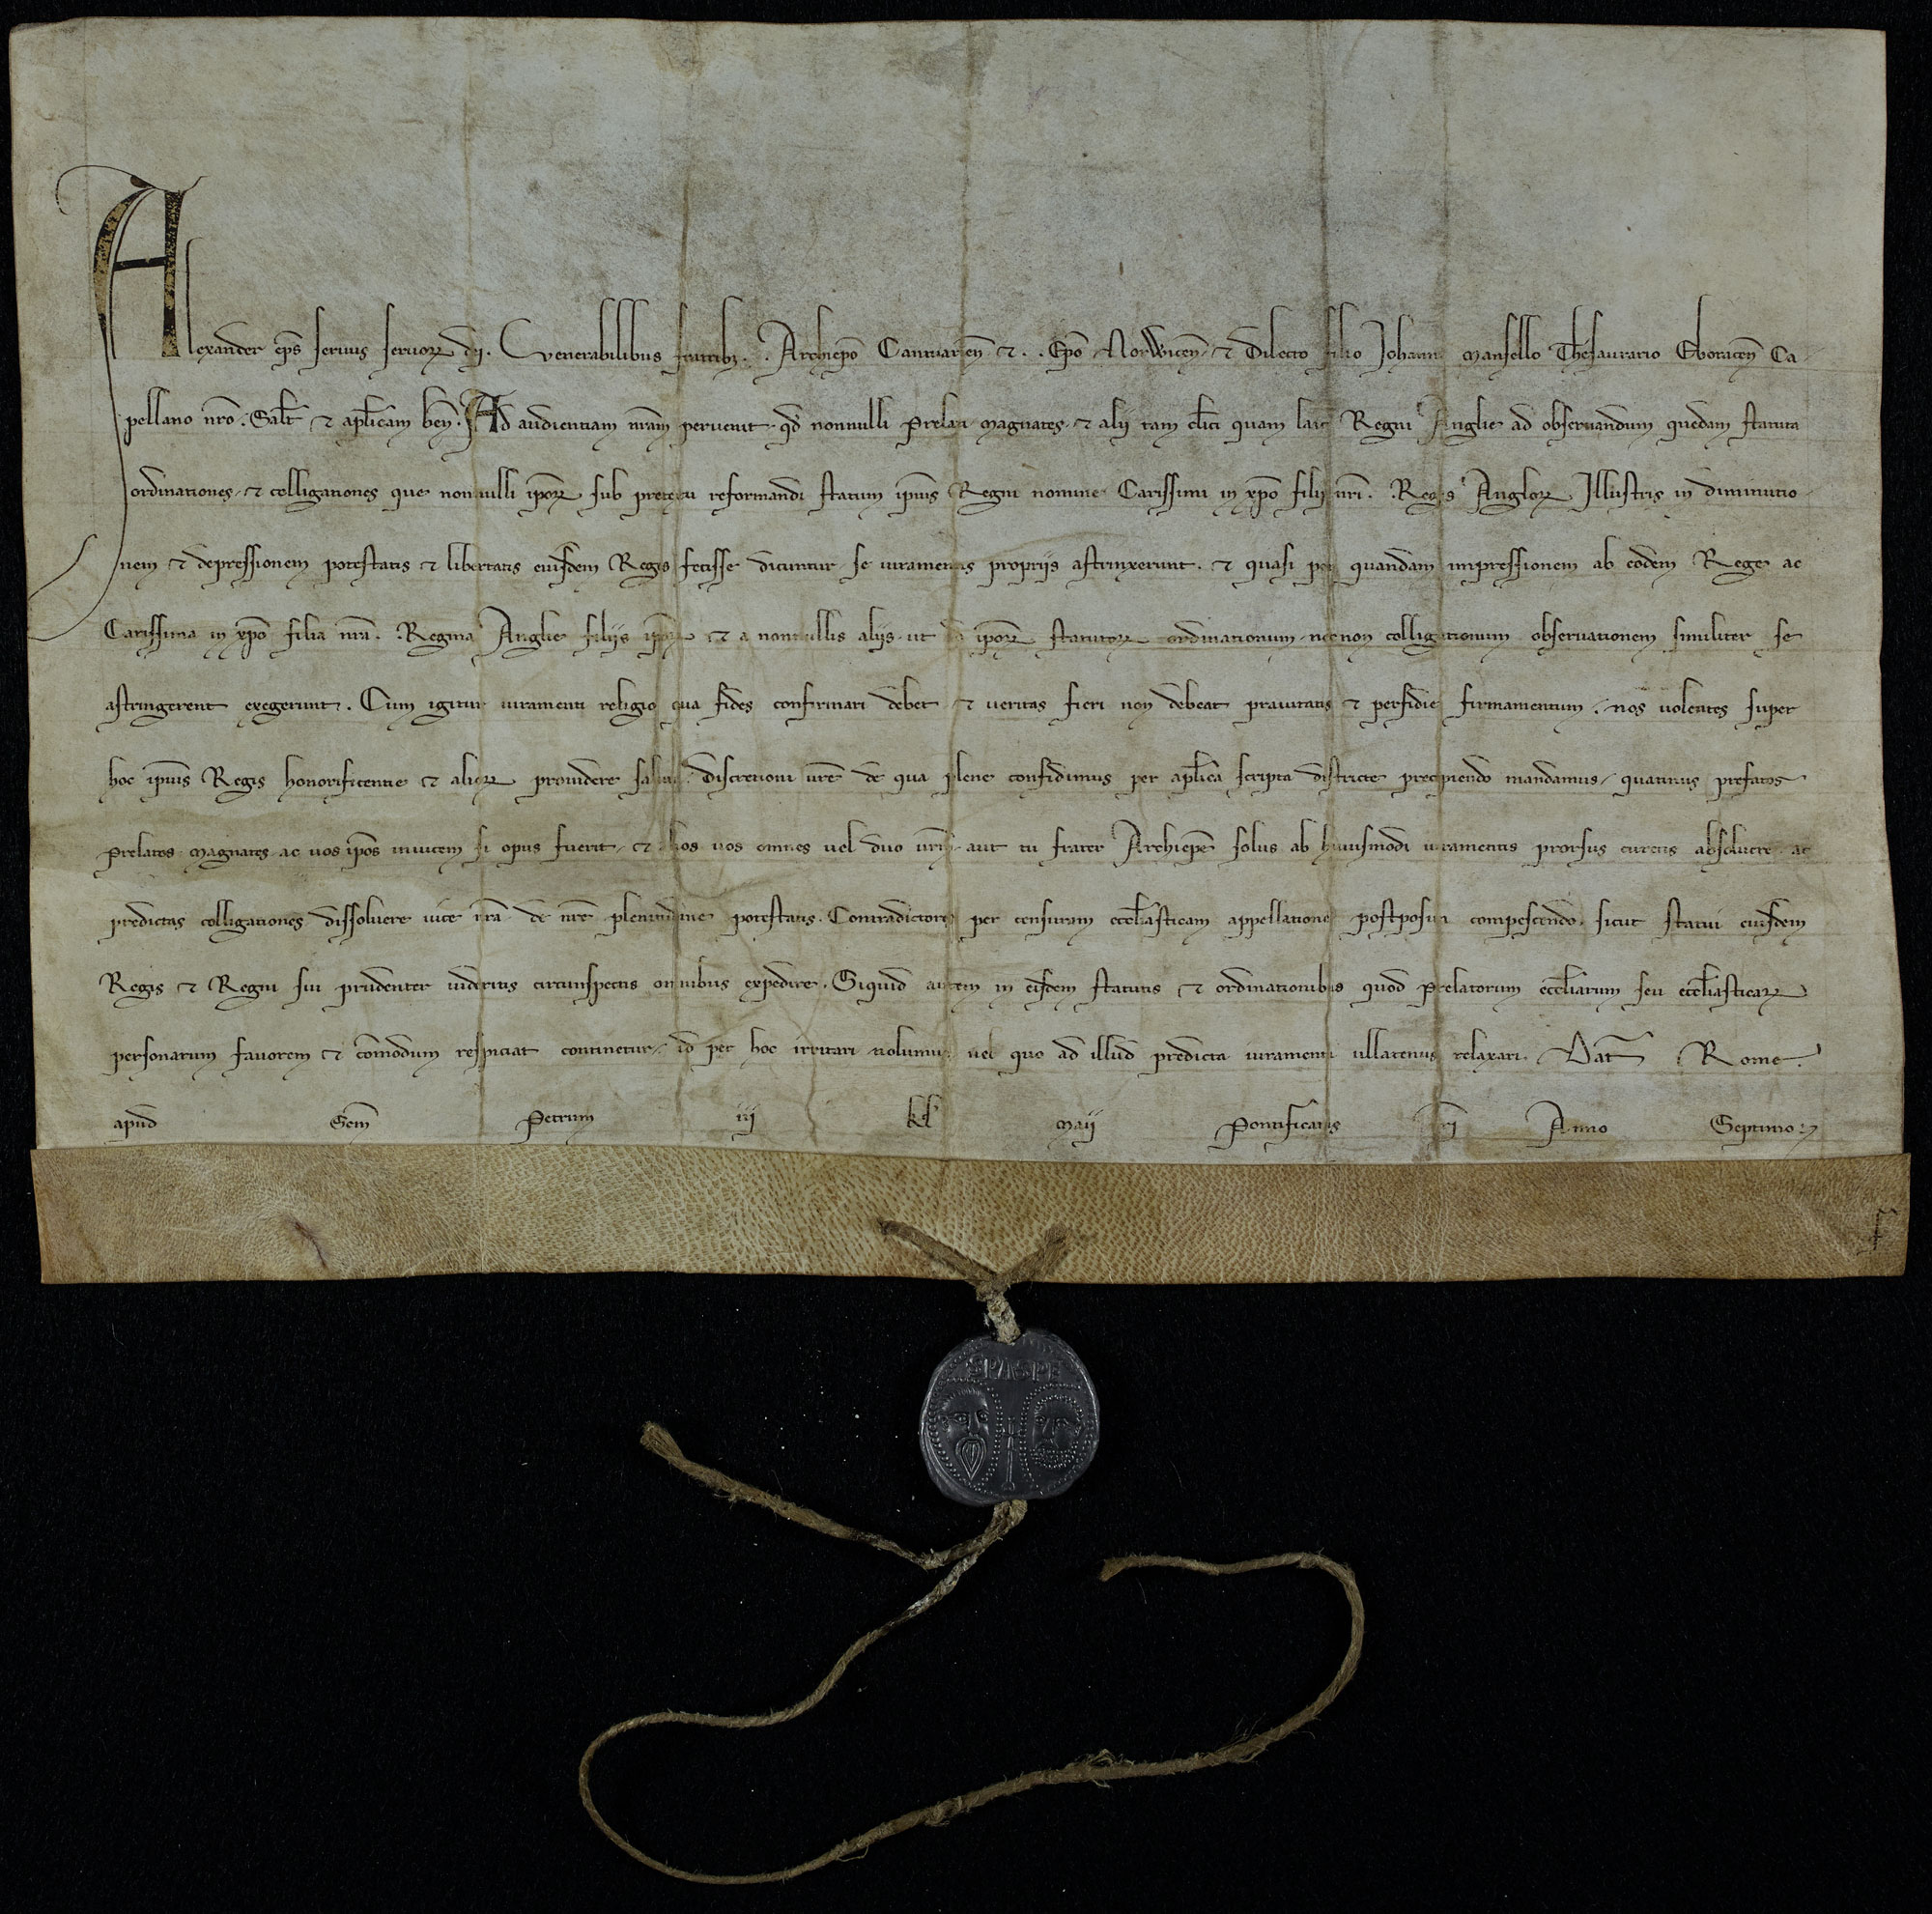 Alexander ep̄s seruus seruoꝝ dī. Venerabilibus fratribꝫ . . Archiep̄o Cantuarien̄ ⁊ . . Ep̄o Norwicen̄ ⁊ Dilecto filio Johanni Mansello Thesaurario Eboracen̄ Ca-
pellano nr̄o. Salt̄ ⁊ apl̄icam ben̄. Ad audientiam nr̄am peruenit qd̄ nonnulli Prelati Magnates ⁊ alij tam cl̄ici quam laici Regni Anglie ad obseruandum quedam statuta
ordinationes ⁊ colligationes que nonnulli ip̄oꝝ sub pretextu reformandi statum ip̄ius Regni nomine Carissimi in xp̄o filij nr̄i . . Regis Angloꝝ Illustris in diminutio-
nem ⁊ depressionem potestatis ⁊ libertatis eiusdem Regis fecisse dicuntur se iuramentis proprijs astrinxerunt. ⁊ quasi per quandam impressionem ab eodem Rege ac
Carissima in xp̄o filia nr̄a . . Regina Anglie filijs ip̄oꝝ ⁊ a nonnullis alijs ut ad ip̄oꝝ statutoꝝ ordinationum necnon colligationum obseruationem similiter se
astringerent exegerunt. Cum igitur iuramenti religio qua fides confirmari debet ⁊ ueritas fieri non debeat prauitatis ⁊ perfidie firmamentum. nos uolentes super
hoc ip̄ius Regis honorificentie ⁊ alioꝝ prouidere saluti. Discretioni ur̄e de qua plene confidimus per apl̄ica scripta districte precipiendo mandamus quatinus prefatos
Prelatos Magnates ac uos ip̄os inuicem si opus fuerit ⁊ alios uos omnes uel duo ur̄m aut tu frater Archiep̄e solus ab huiusmodi iuramentis prorsus curetis absoluere ac
predictas colligationes dissoluere uice nr̄a de nr̄e plenitudine potestatis. Contradictores per censuram eccl̄iasticam appellatione postposita compescendo. sicut statui eiusdem
Regis ⁊ Regni sui prudenter uideritis circumspectis omnibus expedire. Siquid autem in eisdem statutis ⁊ ordinationibus quod Prelatorum eccl̄iarum seu eccl̄iasticaꝝ
personarum fauorem ⁊ cōmodum respiciat continetur. id per hoc irritari nolumus uel quo ad illud predicta iuramenta ullatenus relaxari. Dat̄ Rome
apud Scm̄ Petrum iij kl̄ Maij Pontificatus nr̄i Anno Septimo.
SPASPE